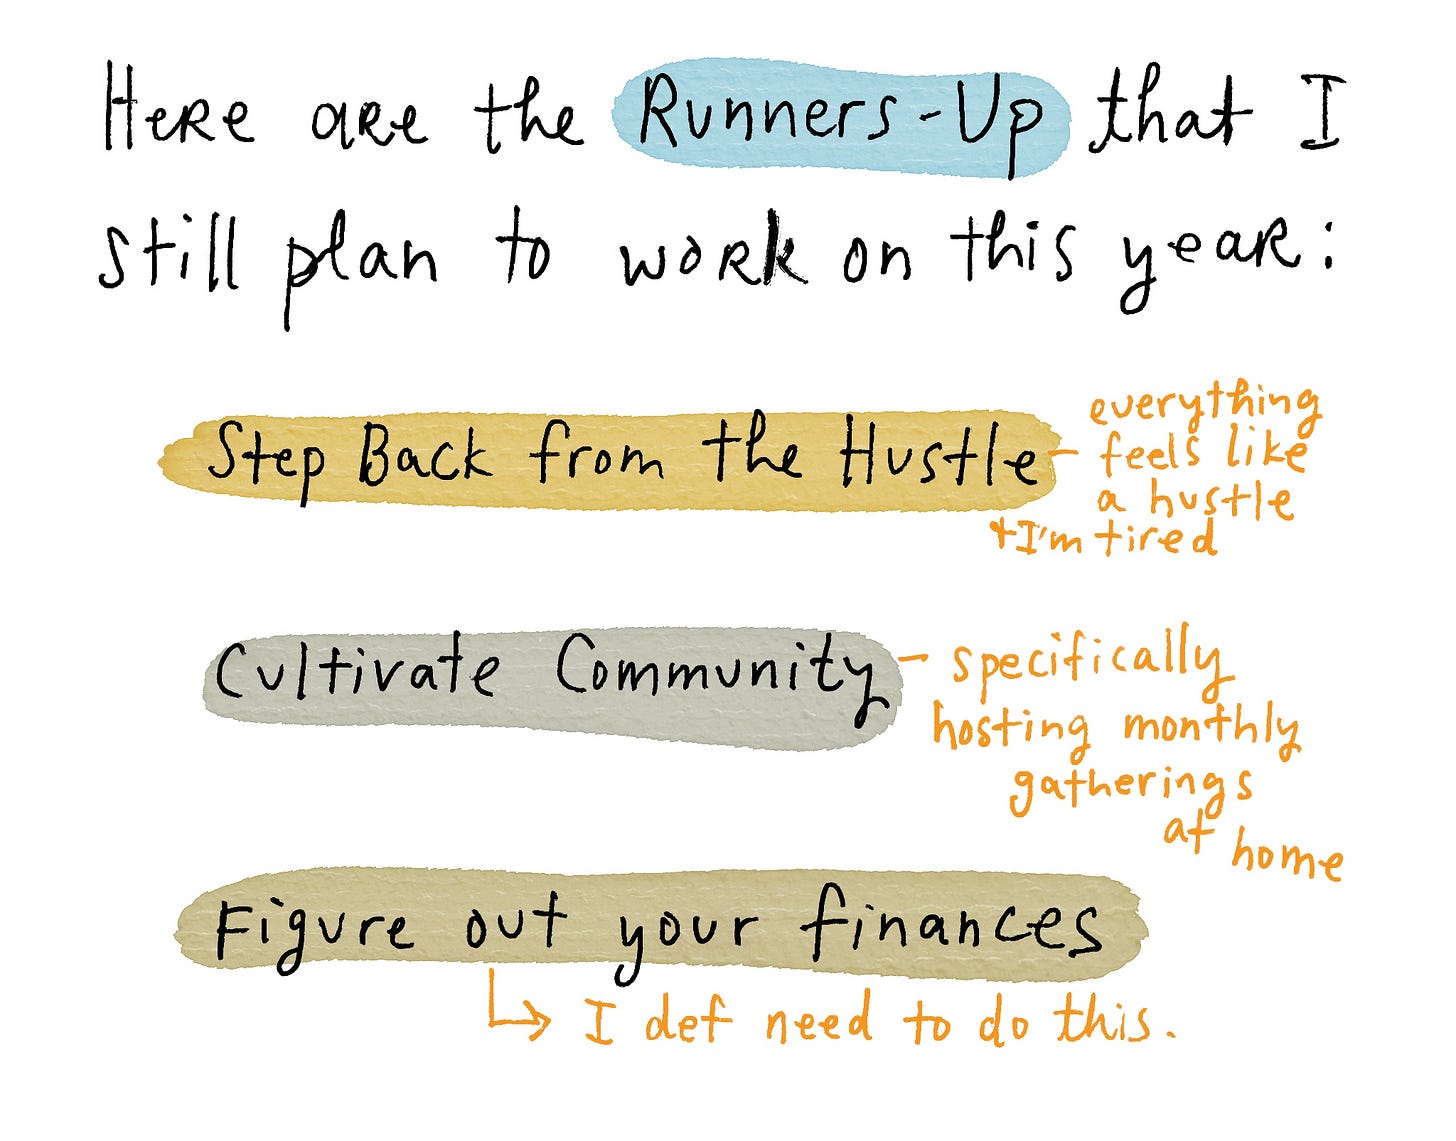 Here are the Runners-Up that I
still plan to work on this year:
Step Back from the Hustle
- everything
feels like
a hustle
+ I'm tired
Cultivate Community
- specifically
hosting monthly
gatherings
at home
Figure out your finances
→ I def need to do this.